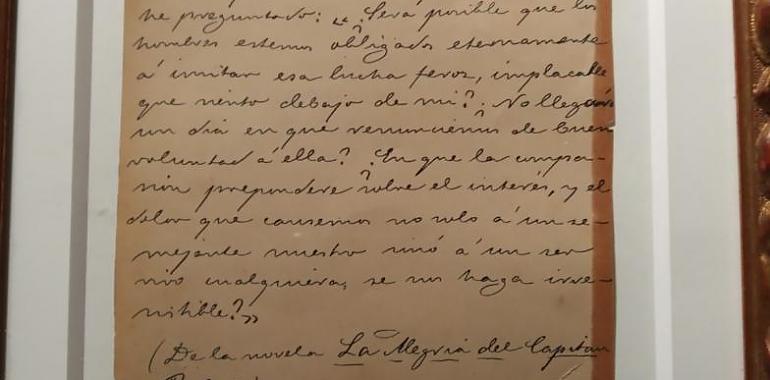 he preguntado: "¿Será posible que los
hombres estemos obligados eternamente
á imitar esa lucha feroz, implacable
que siento debajo de mi? ¿No llegará
un dia en que renunciemos de buena
voluntad á ella? ¿En que la compa-
sión prepondere sobre el interés, y el
dolor que causemos no solo á un se-
mejante nuestro sinó á un ser
vivo cualquiera, se nos haga irre-
sistible?"
(De la novela La Alegria del Capitan